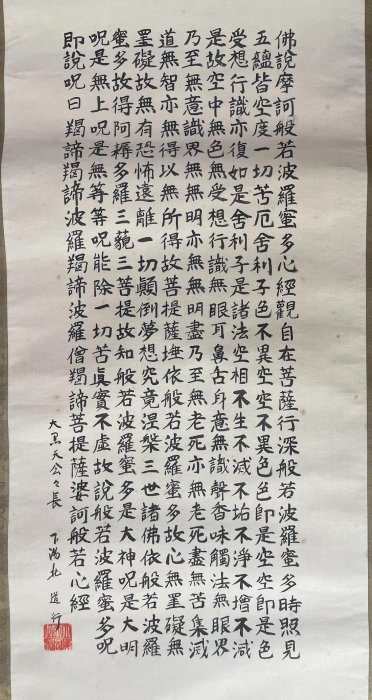 佛說摩訶般若波羅蜜多心經觀自在菩薩行深般若波羅蜜多時照見
五蘊皆空度一切苦厄舍利子色不異空空不異色色即是空空即是色
受想行識亦復如是舍利子是諸法空相不生不滅不垢不淨不增不減
是故空中無色無受想行識無眼耳鼻舌身意無識聲香味觸法無眼界
乃至無意識界無無明亦無無明盡乃至無老死亦無老死盡無苦集滅
道無智亦無得以無所得故菩提薩埵依般若波羅蜜多故心無罣礙無
罣礙故無有恐怖遠離一切顛倒夢想究竟涅槃三世諸佛依般若波羅
蜜多故得阿耨多羅三藐三菩提故知般若波羅蜜多是大神呪是大明
呪是無上呪是無等等呪能除一切苦眞實不虛故說般若波羅蜜多呪
即說呪曰羯諦羯諦波羅羯諦波羅僧羯諦菩提薩婆訶般若心經
大黒天公々長
道行